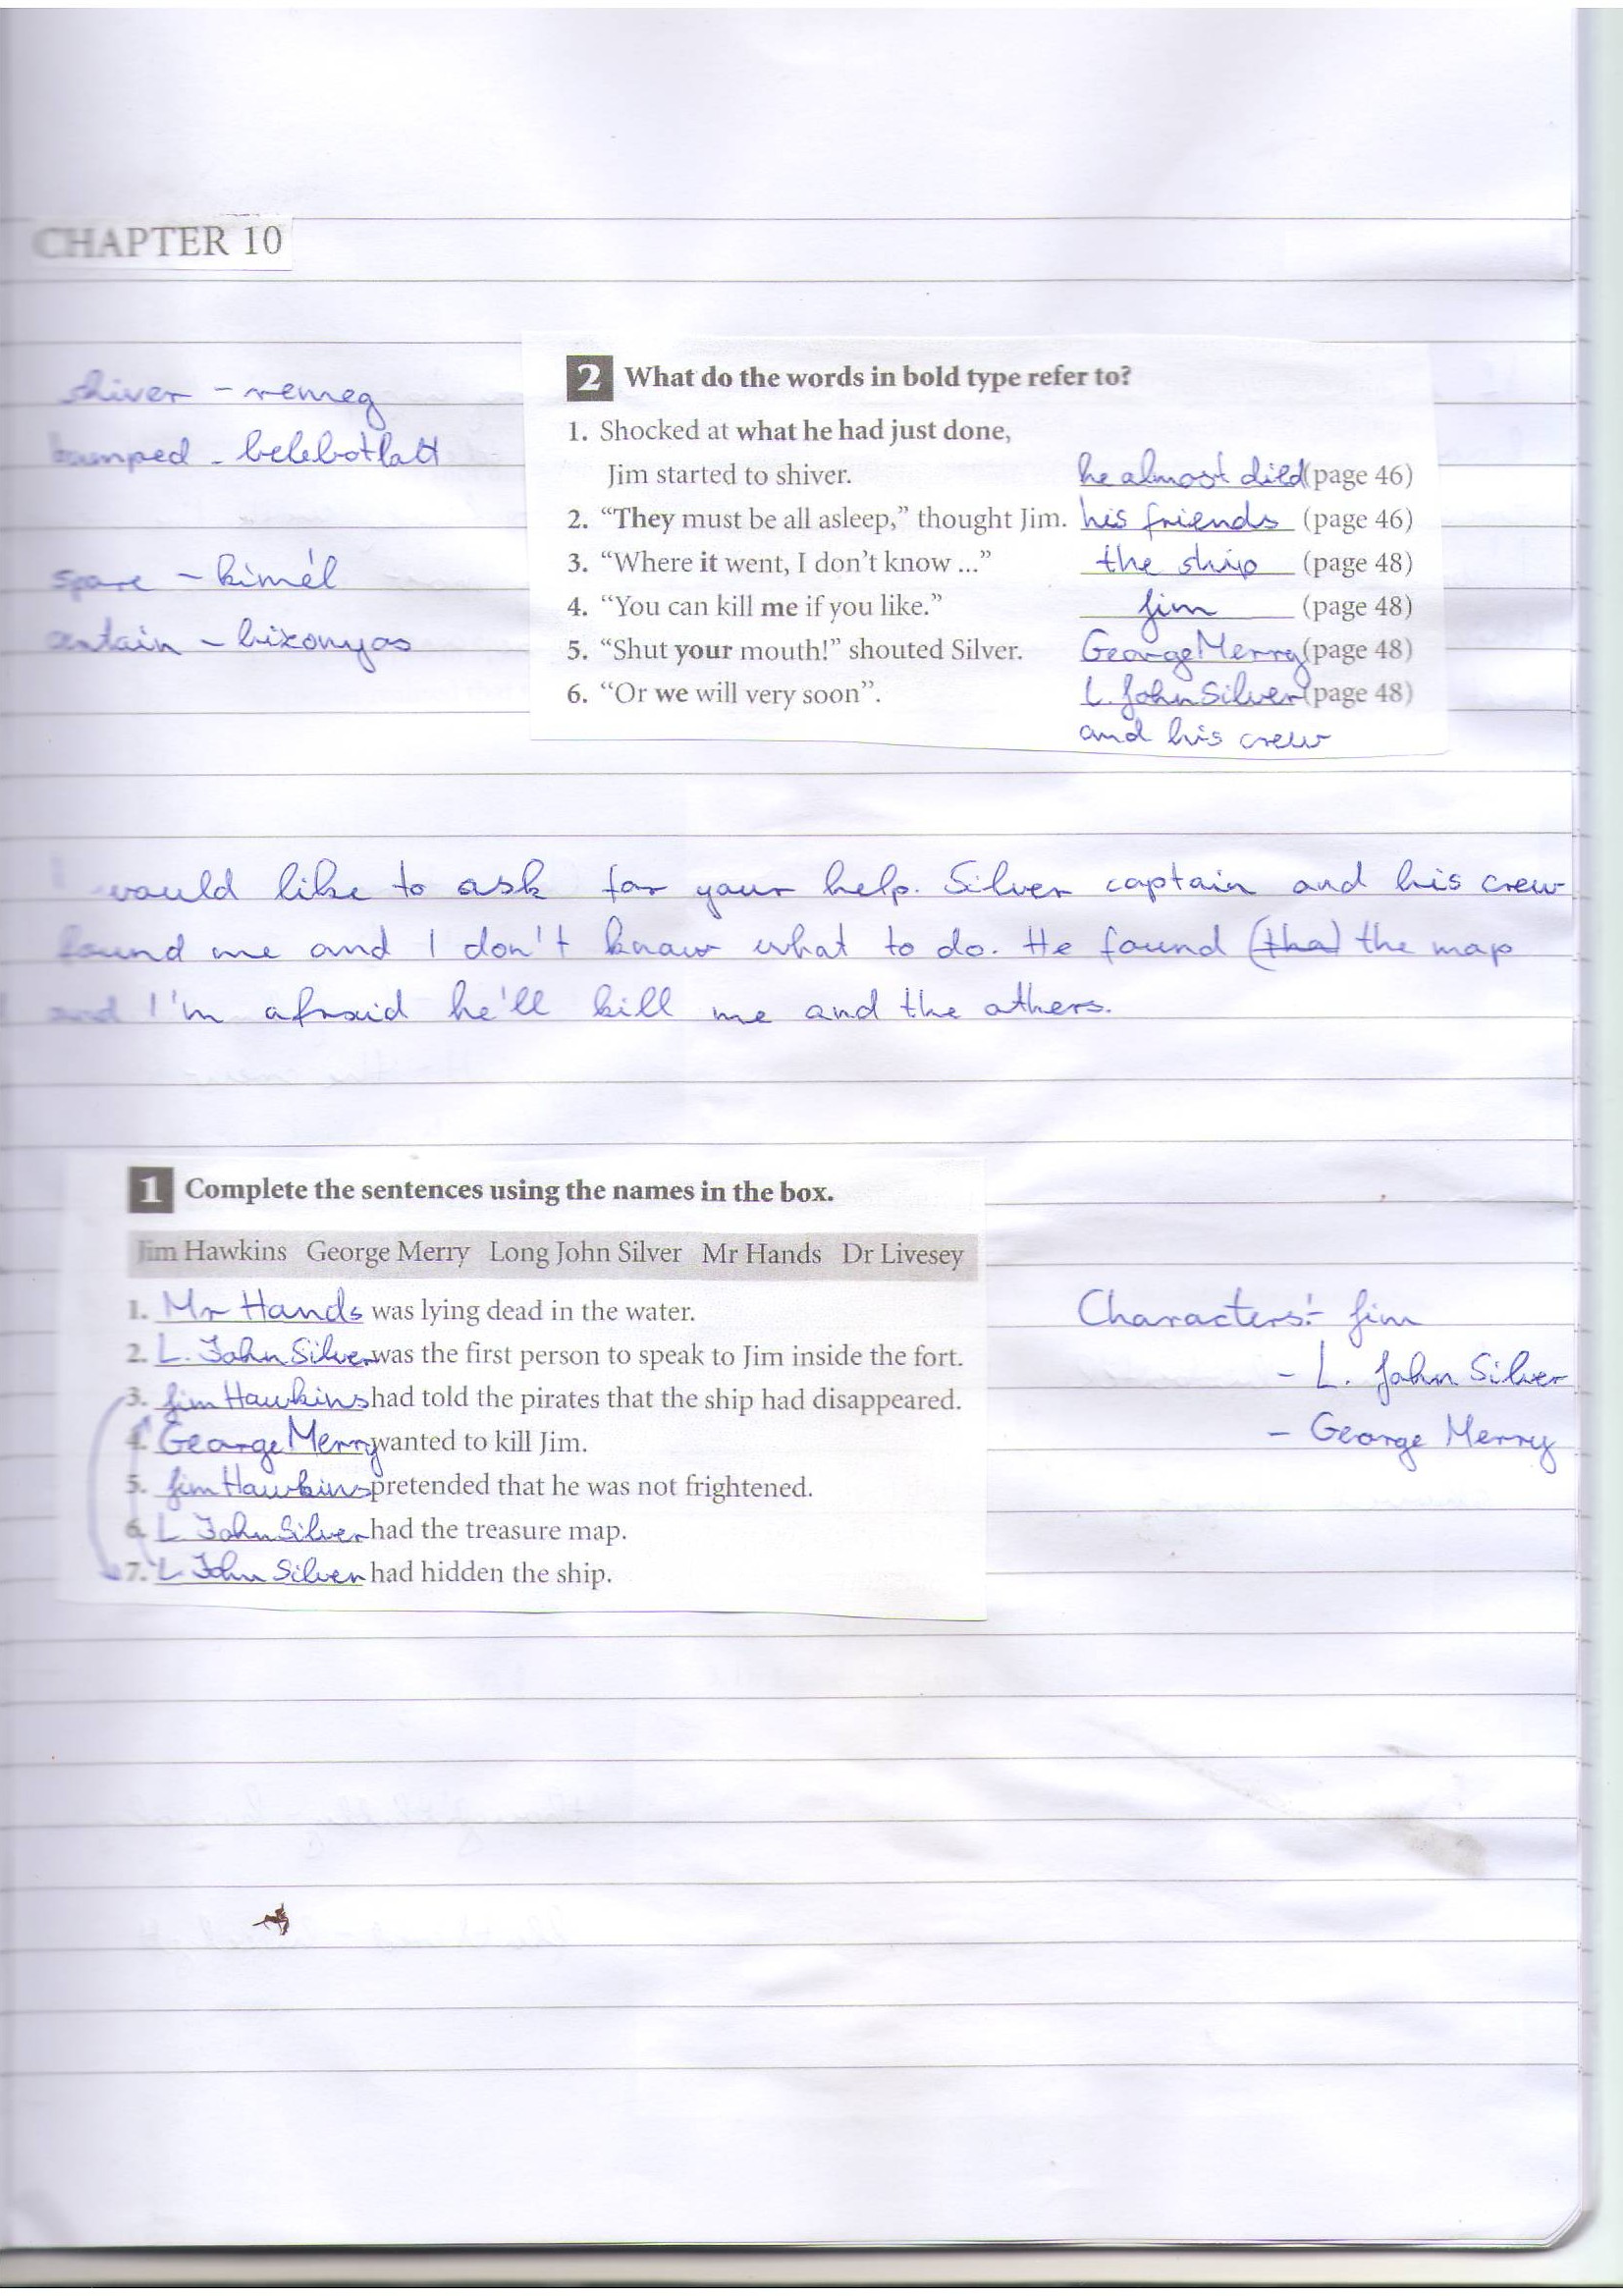 CHAPTER 10
shiver - remeg
bumped - belebotlott
spare - kímél
certain - bizonyos
2 What do the words in bold type refer to?
1. Shocked at what he had just done,
Jim started to shiver. he almost died (page 46)
2. “They must be all asleep,” thought Jim. his friends (page 46)
3. “Where it went, I don’t know ...” the ship (page 48)
4. “You can kill me if you like.” Jim (page 48)
5. “Shut your mouth!” shouted Silver. George Merry (page 48)
6. “Or we will very soon”. L. John Silver (page 48)
and his crew
I would like to ask for your help. Silver captain and his crew
found me and I don't know what to do. He found (tha) the map
and I'm afraid he'll kill me and the others.
1 Complete the sentences using the names in the box.
Jim Hawkins George Merry Long John Silver Mr Hands Dr Livesey
1. Mr Hands was lying dead in the water.
2. L. John Silver was the first person to speak to Jim inside the fort.
3. Jim Hawkins had told the pirates that the ship had disappeared.
4. George Merry wanted to kill Jim.
5. Jim Hawkins pretended that he was not frightened.
6. L John Silver had the treasure map.
7. L John Silver had hidden the ship.
Characters: - Jim
- L. John Silver
- George Merry